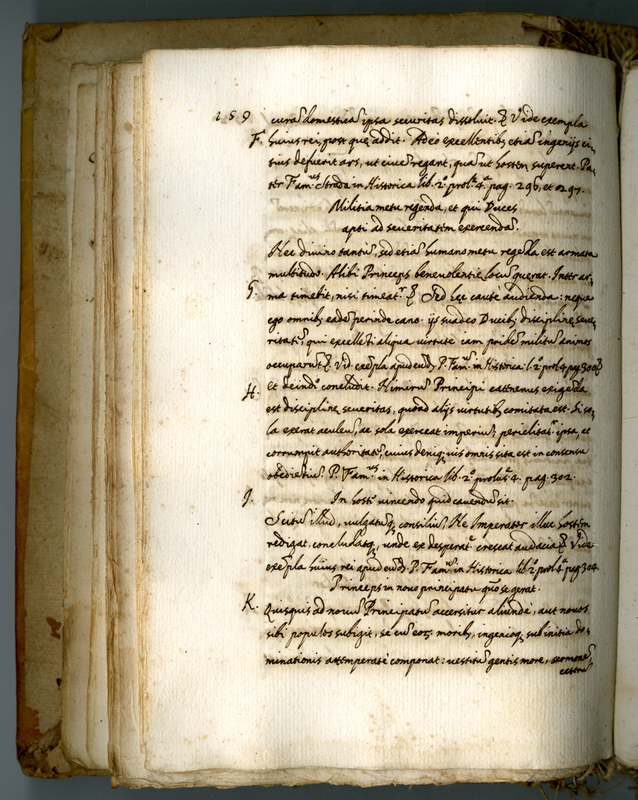 159 cura domestica ipsa securitas dissoluit. Vide exempla
F. huius rei, post quę addit. Adeo excellentib, etia ingenijs ci,
tius defuerit ars, ut ciuē regant, qua ut hostem superent. Pa,
ter Fam.us Strada in Historica lib. 2.º prol. 4.ª pag. 296, et 297.
Militia metu regenda, et qui Duces
apti ad seueritatem exercenda.
Nec diuino tantu, sed etia humano metu regeda est armata
multitudo. Alibi Princeps beneuolentię locu querat. Inter ar,
G. ma timebit, nisi timeat.r Sed hęc cautè audienda: neque
ego omnib, eadē perinde cano. ijs suadeo Ducib, disciplinę seue,
ritate, qui excelleti aliqua uirtute iam pride militu animos
occuparut. Vid. exepla apud eud. P. Fam.m in Historica l. 2.º prol. 4. pag. 300.
H. Et deinde concludit. Nimiru Principi eattenus exigeda
est disciplinę seueritas, quoad alijs uirtutib, comitata est. Si so,
la exerat aculeu, ac sola exerceat imperiu, periclitat.r ipsa, et
corrumpit authoritate, cuius deniq, uis omnis sita est in consensu
obedietiu. P. Fam.us in Historica lib. 2.º prolus. 4. pag. 302.
J. In hoste uincendo quid cauendu sit.
Scitu illud, uulgatuq, consiliu, Ne Imperator illuc hostem
redigat, concludatq, unde ex desperat.e crescat audacia. Vide
exepla huius rei apud eud. P. Fam.m in Historica lib. 2.º prol. 4.ª pag. 304
Princeps in nouo principatu quo se gerat.
K. Quisquis ad nouu Principatu accersitur aliunde, aut nouos
sibi populos subigit, se cu eor, morib, ingenioq, sub initia do,
minationis attemperatè componat: uestitu gentis more, sermone